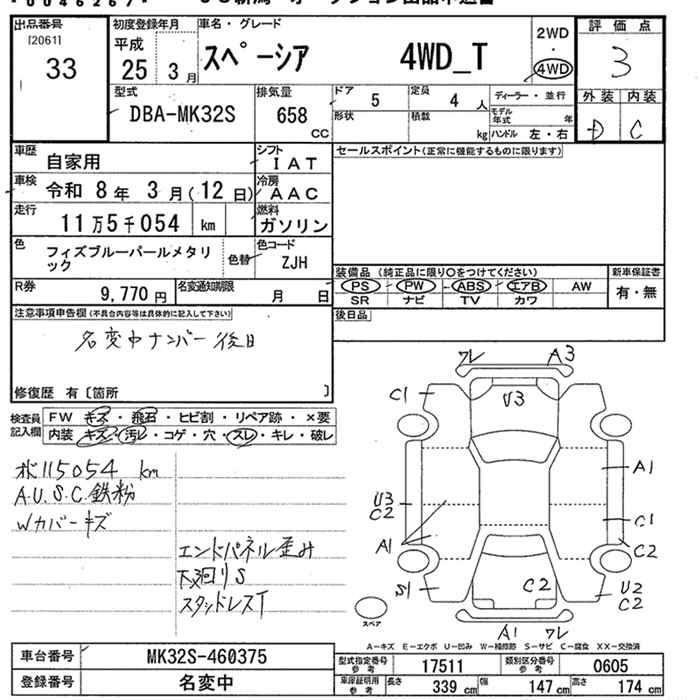 出品番号
[2061]
33
初度登録年月
平成
25 3 月
車名・グレード
スペーシア 4WD_T
2WD
・
4WD
評価点
3
外装 内装
D C
型式
DBA-MK32S
排気量
658
CC
ドア 5
定員 4 人
形状
積載 kg
ディーラー・並行
モデル年式 年
ハンドル 左・右
車歴 自家用
シフト IAT
車検 令和 8年 3月(12日)
冷房 AAC
走行 11万5千054 km
燃料 ガソリン
色 フィズブルーパールメタリック
色替
色コード ZJH
R券 9,770円
名変通知期限 月 日
セールスポイント(正常に機能するものに限ります)
装備品 (純正品に限り○をつけてください)
PS PW ABS エアB AW
SR ナビ TV カワ
新車保証書
有・無
後日品
注意事項申告欄(不具合内容等は具体的に記入して下さい)
名変中ナンバー後日
修復歴 有〔箇所 〕
検査員記入欄
FW キズ・飛石・ヒビ割・リペア跡・×要
内装 キズ・汚レ・コゲ・穴・スレ・キレ・破レ
水115054 km
A.U.S.C.鉄粉
Wカバーキズ
エンドパネル歪み
下廻りS
スタッドレスT
ワレ A3
C1
U3
A1
U3
C2
C1
A1
C2
S1
C2
U2
C2
A1 ワレ
スペア
A-キズ E-エクボ U-凹み W-補修跡 S-サビ C-腐食 XX-交換済
車台番号 MK32S-460375
登録番号 名変中
型式指定番号
参考
17511
類別区分番号
参考
0605
車庫証明用
参考
長さ 339 cm
幅 147 cm
高さ 174 cm